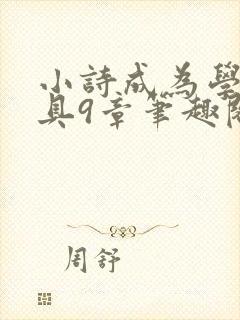 小詩成為學
具9章筆趣閱
周舒